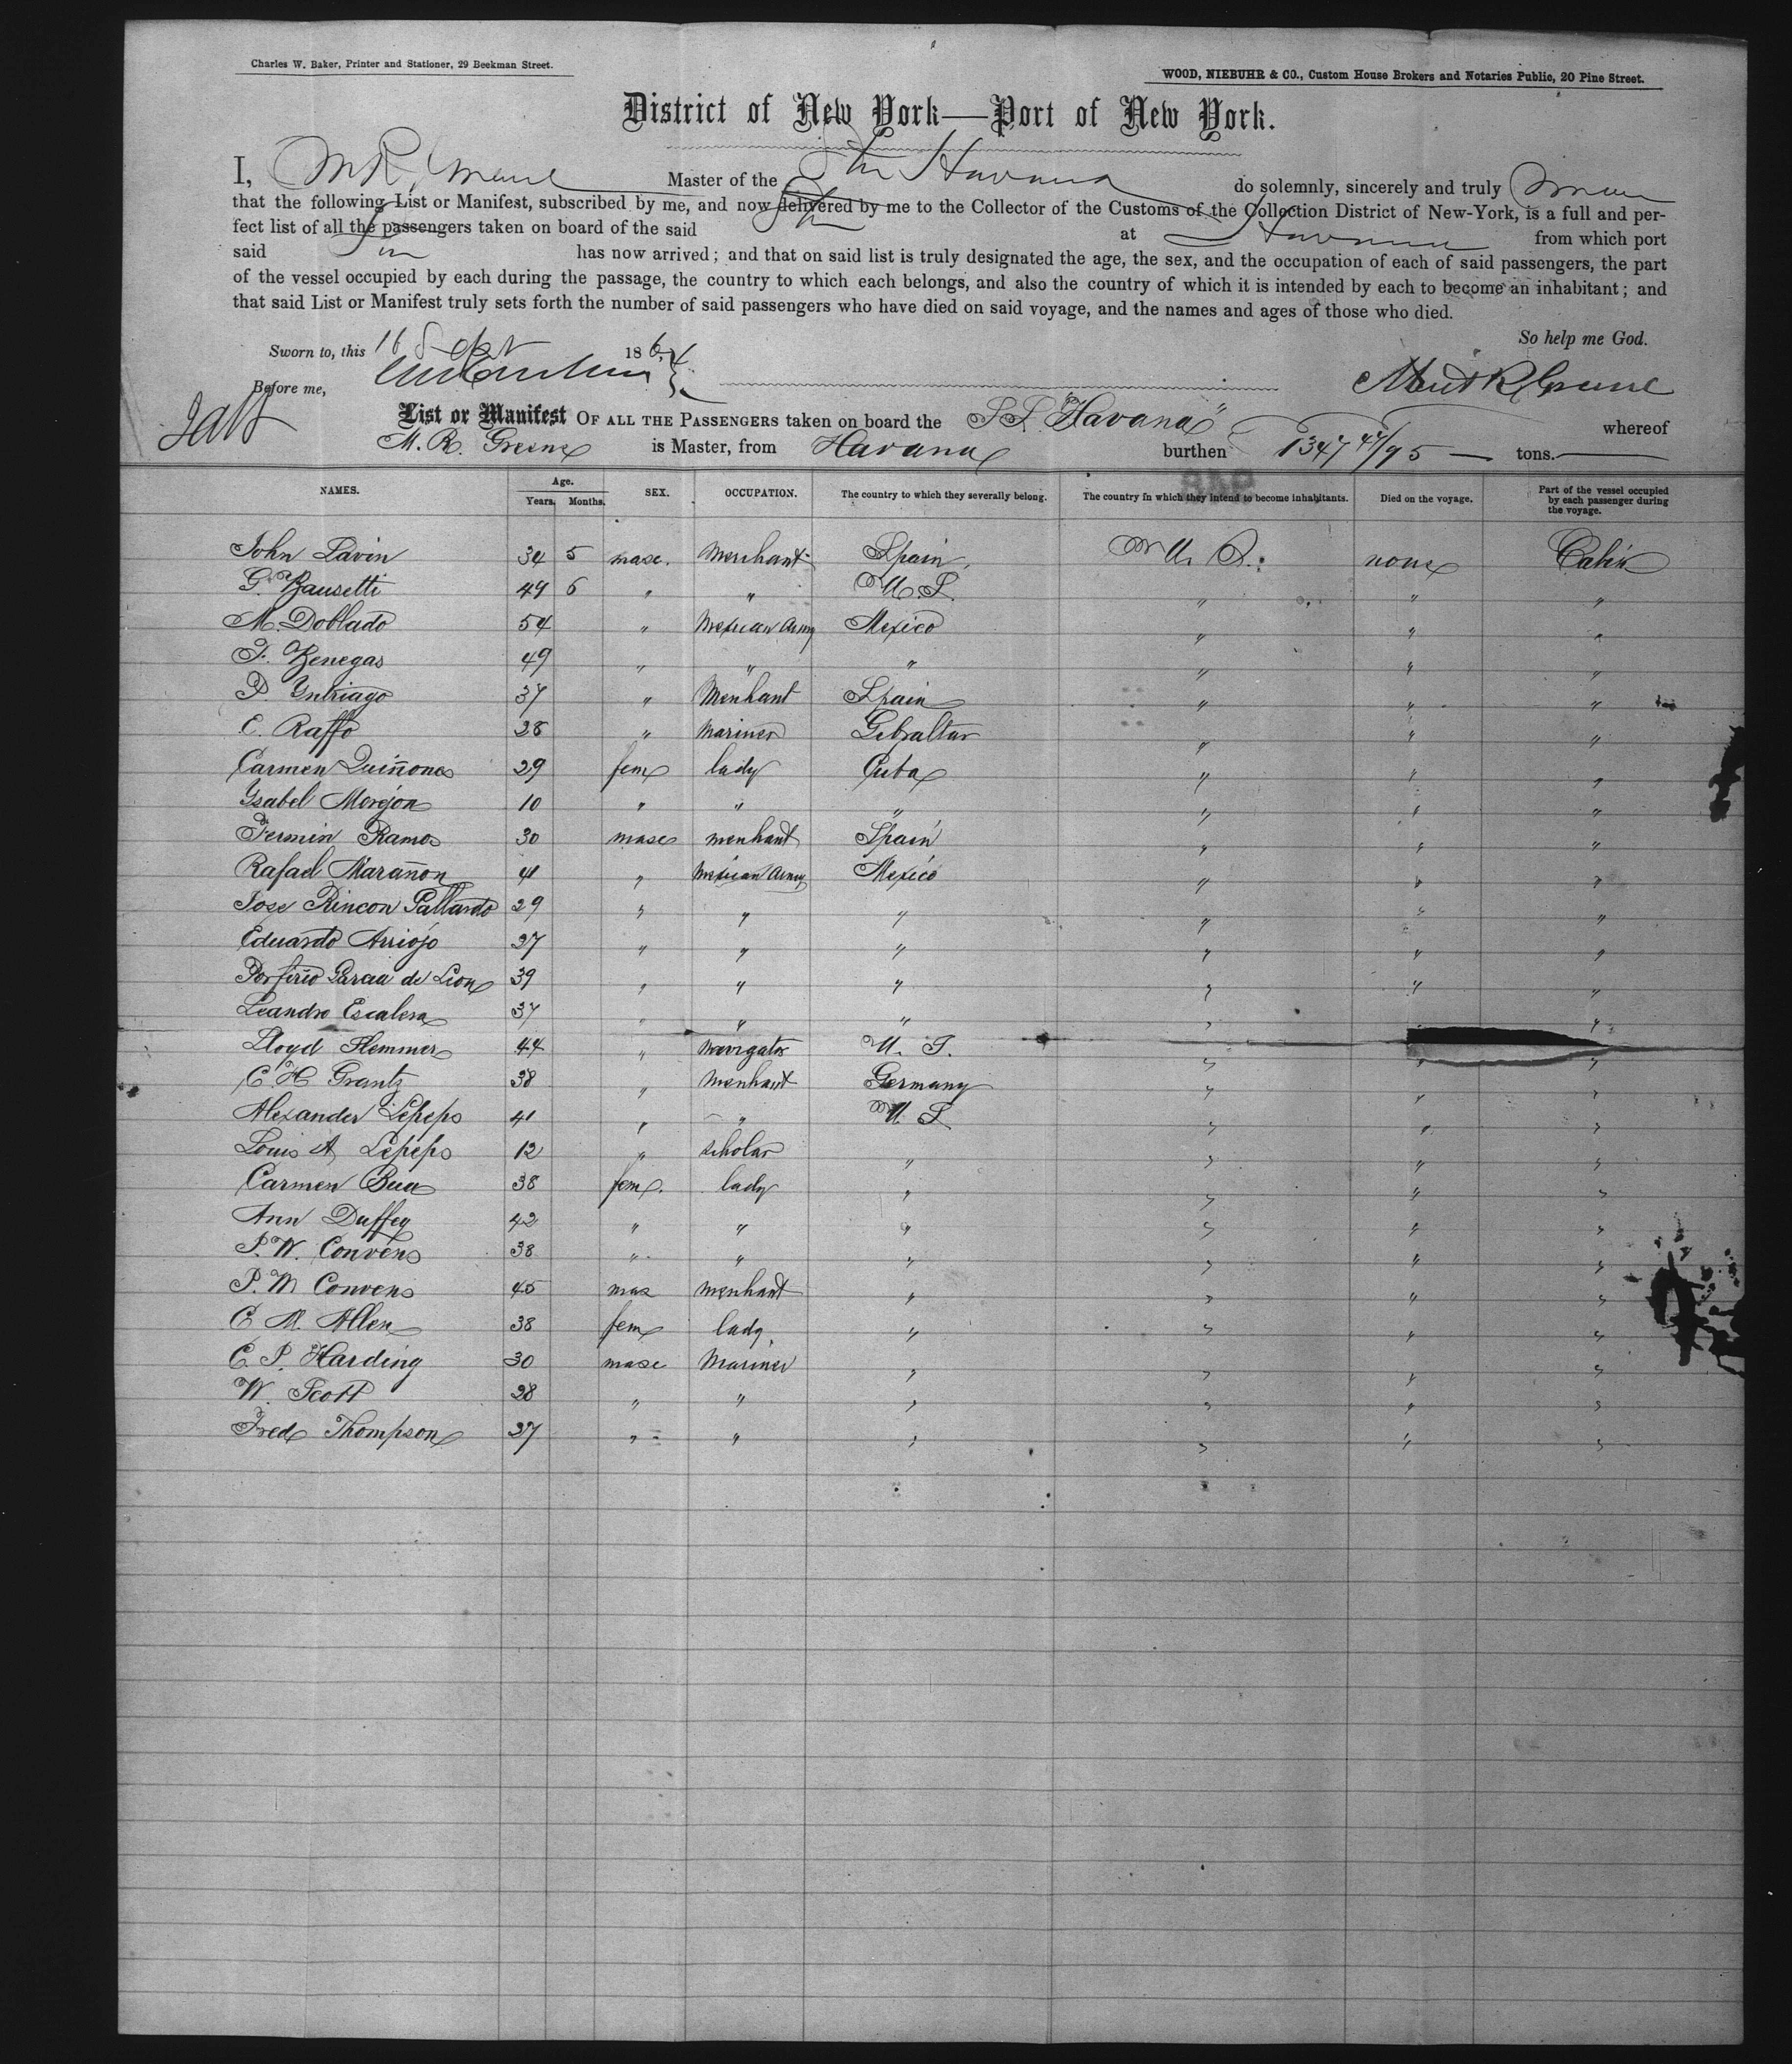 Charles W. Baker, Printer and Stationer, 29 Beekman Street.
WOOD, NIEBUHR & CO., Custom House Brokers and Notaries Public, 20 Pine Street.
District of New York—Port of New York.
I, M R Greene Master of the Str Havana do solemnly, sincerely and truly swear
that the following List or Manifest, subscribed by me, and now delivered by me to the Collector of the Customs of the Collection District of New-York, is a full and per-
fect list of all the passengers taken on board of the said Str at Havana from which port
said Str has now arrived; and that on said list is truly designated the age, the sex, and the occupation of each of said passengers, the part
of the vessel occupied by each during the passage, the country to which each belongs, and also the country of which it is intended by each to become an inhabitant; and
that said List or Manifest truly sets forth the number of said passengers who have died on said voyage, and the names and ages of those who died.
So help me God.
Sworn to, this 16 Sept 1864
Before me,
R Greene
List or Manifest OF ALL THE PASSENGERS taken on board the S.S. "Havana" whereof
M. R. Greene is Master, from Havana burthen 1347 47/95 tons.
NAMES. Age. Years. Months. SEX. OCCUPATION. The country to which they severally belong. The country in which they intend to become inhabitants. Died on the voyage. Part of the vessel occupied by each passenger during the voyage.
John Lavin 34 5 masc. Merchant Spain U. S. none Cabin
G. Bausetti 49 6 " " U. S. " " "
M. Doblado 54 " Mexican Army Mexico " " "
F. Benegas 49 " " " " " "
P. Yntriago 37 " Merchant Spain " " "
C. Raffo 28 " Mariner Gibraltar " " "
Carmen Quiñones 29 fem lady Cuba " " "
Ysabel Morejon 10 " " " " " "
Fermin Ramos 30 masc merchant Spain " " "
Rafael Marañon 41 " Mexican Army Mexico " " "
Jose Rincon Gallardo 29 " " " " " "
Eduardo Arriojo 27 " " " " " "
Porfirio Garcia de Leon 39 " " " " " "
Leandro Escalera 37 " " " " "
Lloyd Flemmer 44 " Navigator U. S. " " "
C H Grantz 38 " Merchant Germany " " "
Alexander Lepeps 41 " " U S " " "
Louis A Lepeps 12 " scholar " " " "
Carmen Bua 38 fem. lady " " " "
Ann Duffey 42 " " " " " "
P. W. Convens 38 " " " " " "
P. M Convens 45 mas merchant " " " "
C M. Allen 38 fem lady " " " "
C. P. Harding 30 masc Mariner " " " "
W. Scott 28 " " " " " "
Fred Thompson 37 " " " " " "